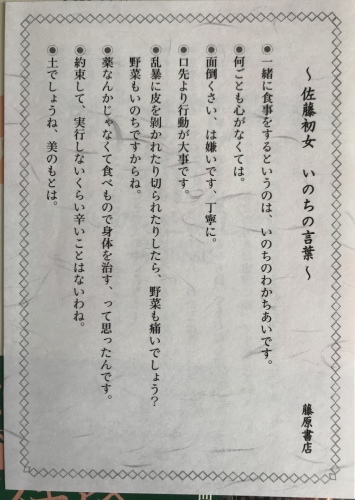 ～佐藤初女　いのちの言葉～
◉一緒に食事をするというのは、いのちのわかちあいです。
◉何ごとも心がなくては。
◉面倒くさい、は嫌いです、丁寧に。
◉口先より行動が大事です。
◉乱暴に皮を剝かれたり切られたりしたら、野菜も痛いでしょう？
野菜もいのちですからね。
◉薬なんかじゃなくて食べもので身体を治す、って思ったんです。
◉約束して、実行しないくらい辛いことはないわね。
◉土でしょうね、美のもとは。
藤原書店